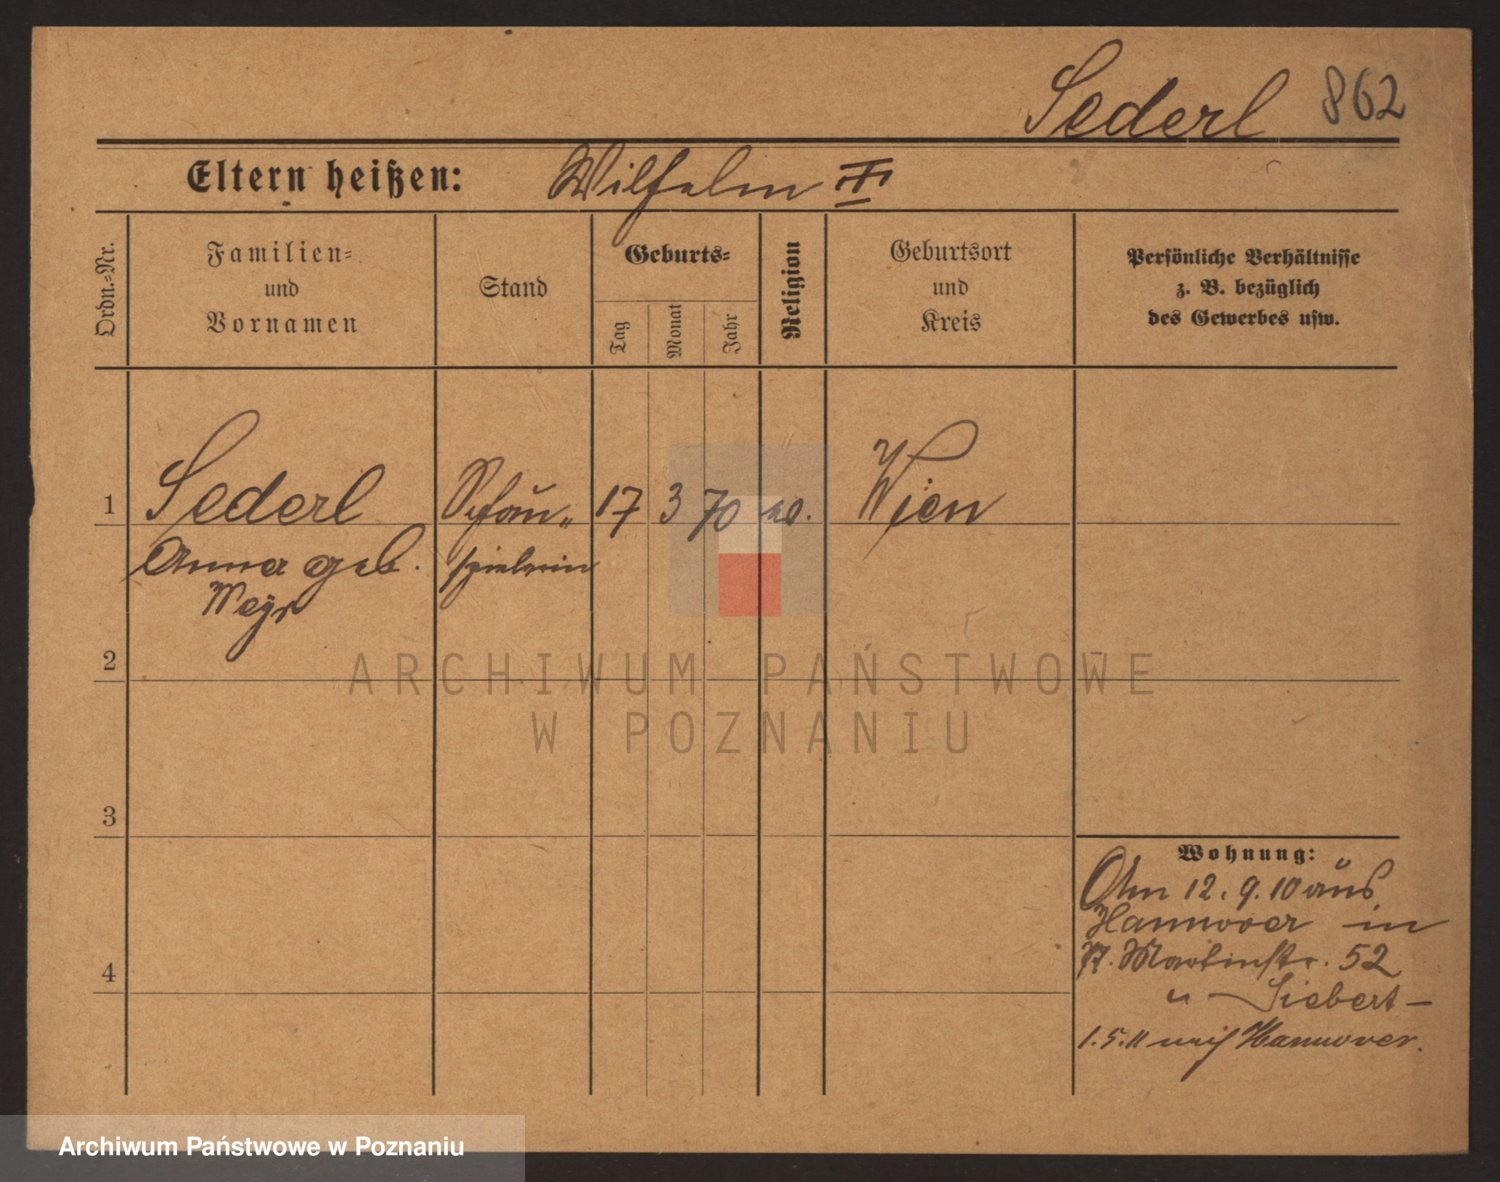 Sederl 862
Eltern heißen: Wilhelm
Ordn.-Nr.
Familien-
und
Vornamen
Stand
Geburts-
Tag
Monat
Jahr
Religion
Geburtsort
und
Kreis
Persönliche Verhältnisse
z. B. bezüglich
des Gewerbes usw.
1 Sederl Schau- 17 3 70 Wien
Anna geb. spielerin
Weyr
2
ARCHIWUM PAŃSTWOWE
W POZNANIU
3
Wohnung:
Am 12. 9. 10 aus
Hannover in
Martinstr. 52
4
Siebert
1. 5. 11 nach Hannover.
Archiwum Państwowe w Poznaniu